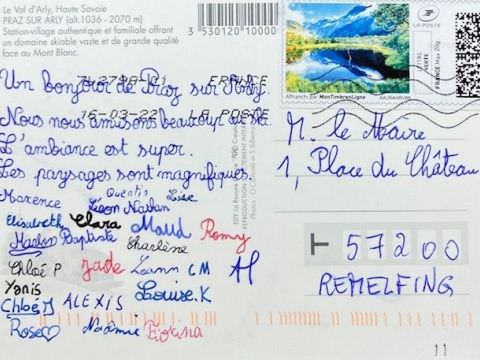 Le Val d'Arly, Haute Savoie
PRAZ SUR ARLY (alt.1036 - 2070 m)
Station-village authentique et familiale offrant
un domaine skiable vaste et de grande qualité
face au Mont Blanc.
3 530120 10000
LA POSTE
LETTRE VERTE
FRANCE Max 20g
Affranchi par MonTimbrenLigne
FRANCE
16-03-22 LA POSTE
Un bonjour de Praz sur Arly.
Nous nous amusons beaucoup au ski.
L'ambiance est super.
Les paysages sont magnifiques.
M. le Maire
1, Place du Château
57200
REMELFING
Maxence Quentin Lise
Léon Nathan
Elisabeth Clara Maud Romy
Baptiste Charlène
Chloé P Jade Loann CM
Yanis
Chloé M ALEXIS Louise.K
Rose Noémie